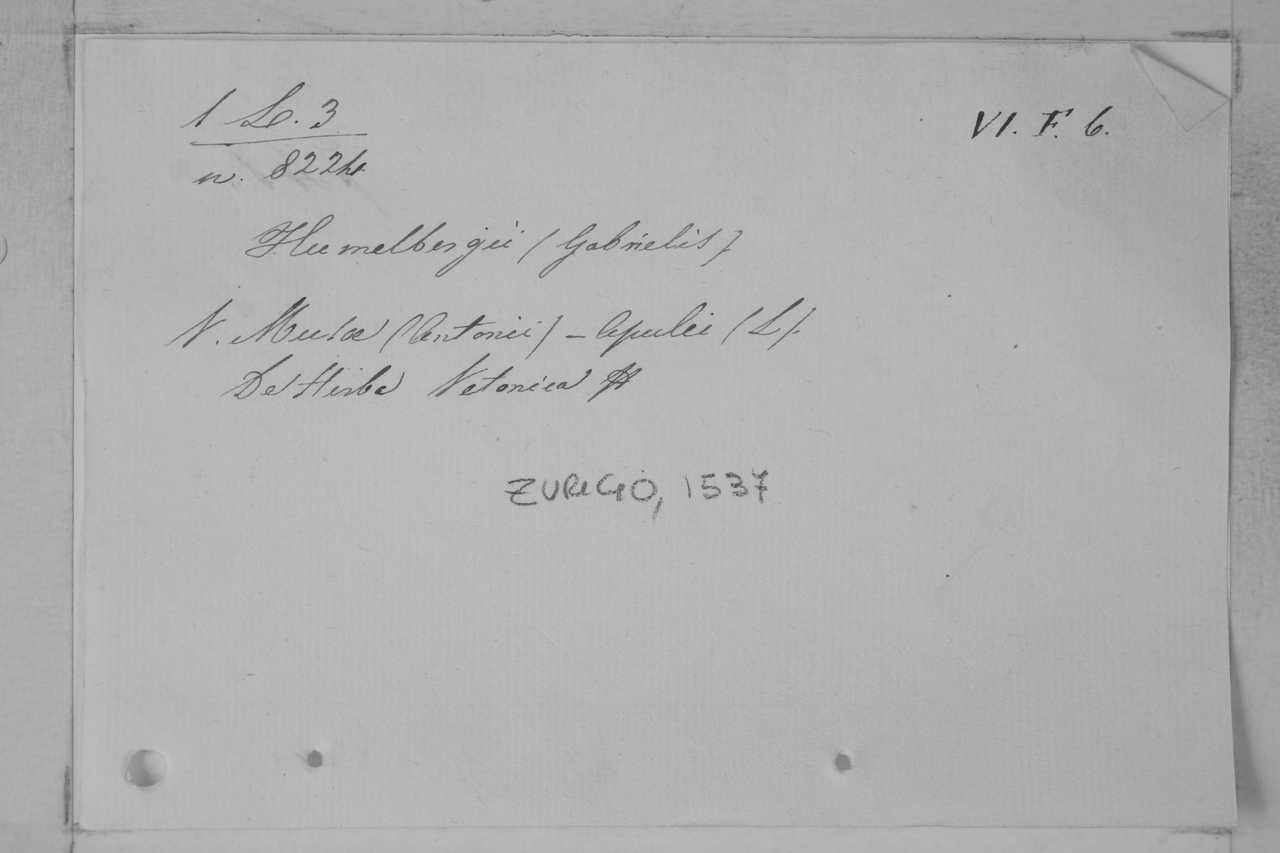 1 L. 3
VI. F. 6.
n. 8224
Humelbergii (Gabrielis)
V. Musæ (Antonii) - Apulei (L).
De Herba Vetonica
ZURIGO, 1537